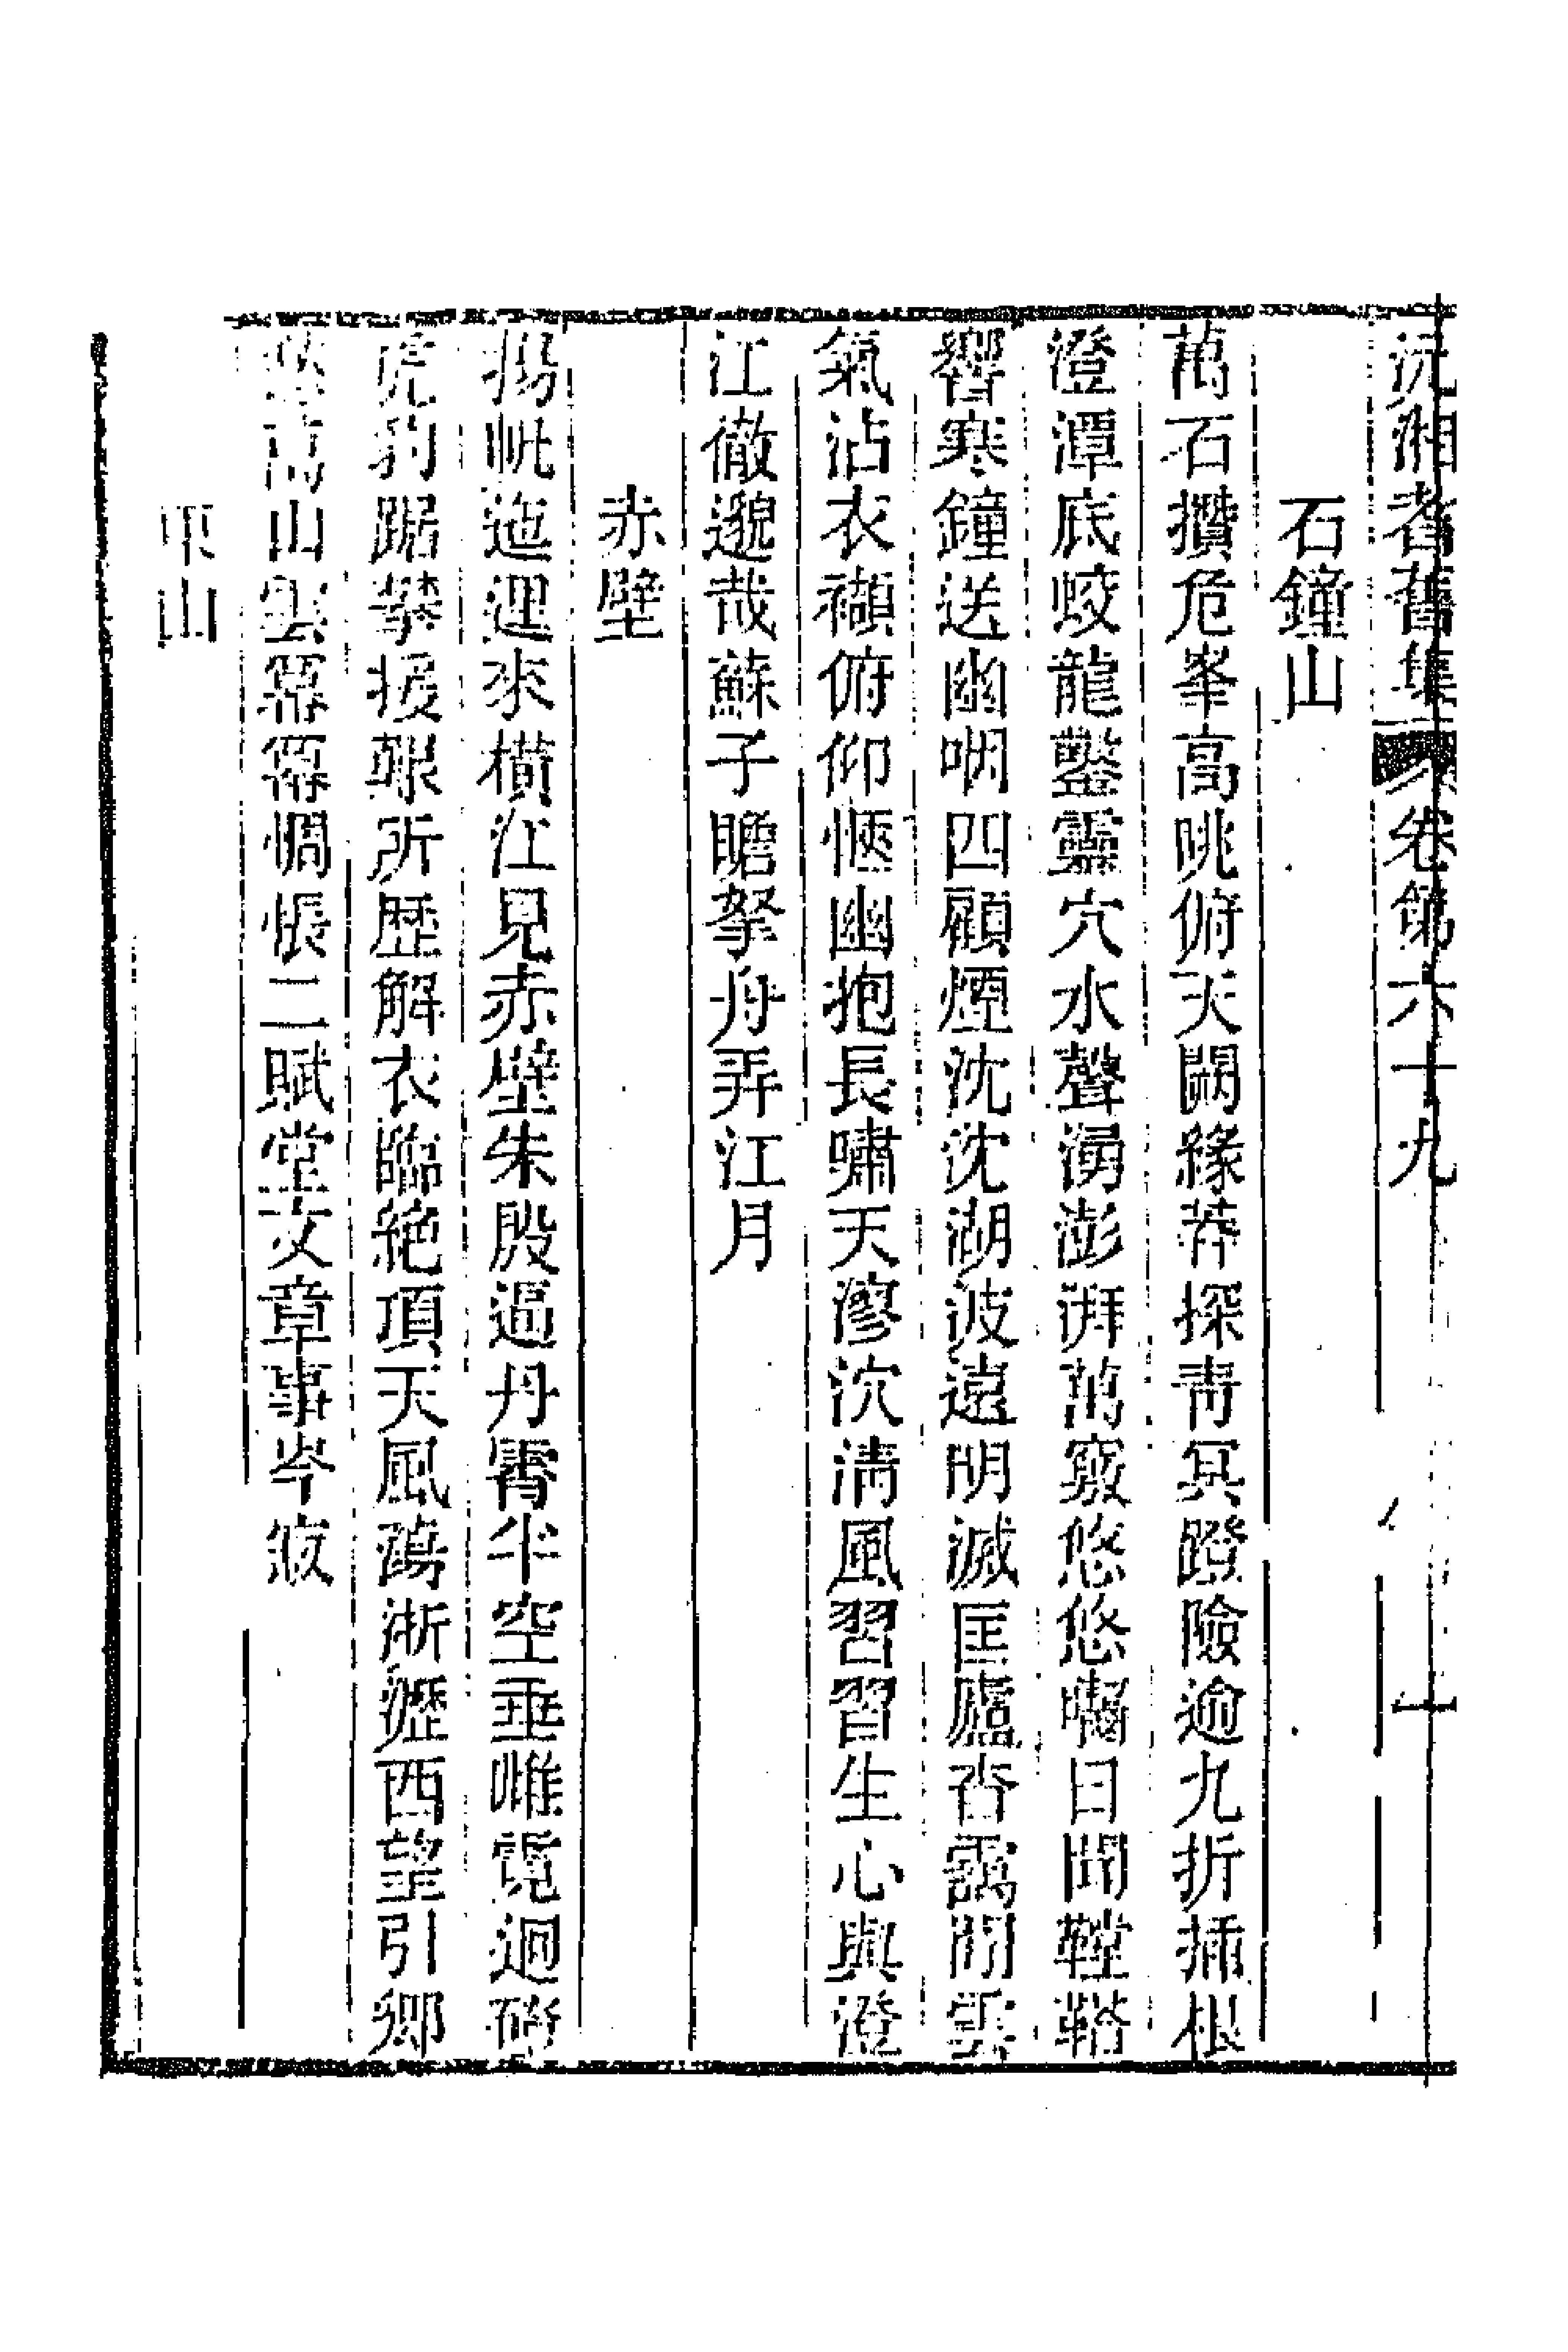 沅湘耆舊集 卷第六十九 十
石鐘山
萬石攢危峯高眺俯天闕緣莽探青冥蹬險逾九折插根
澄潭底蛟龍鑿靈穴水聲湧澎湃萬竅悠悠囓日聞鞺鞳
響寒鐘送幽咽四顧煙沈沈湖波遠明滅匡廬杳靄閒雲
氣沾衣襭俯仰愜幽抱長嘯天漻泬清風習習生心與澄
江徹邈哉蘇子瞻拏舟弄江月
赤壁
揚帆迤邐來橫江見赤壁朱殷逼丹霄半空垂雌霓迴磴
虎豹踞攀援艱所歷解衣臨絕頂天風蕩淅瀝西望引鄉
山雲冪冪惆悵二賦堂文章事岑寂
東山